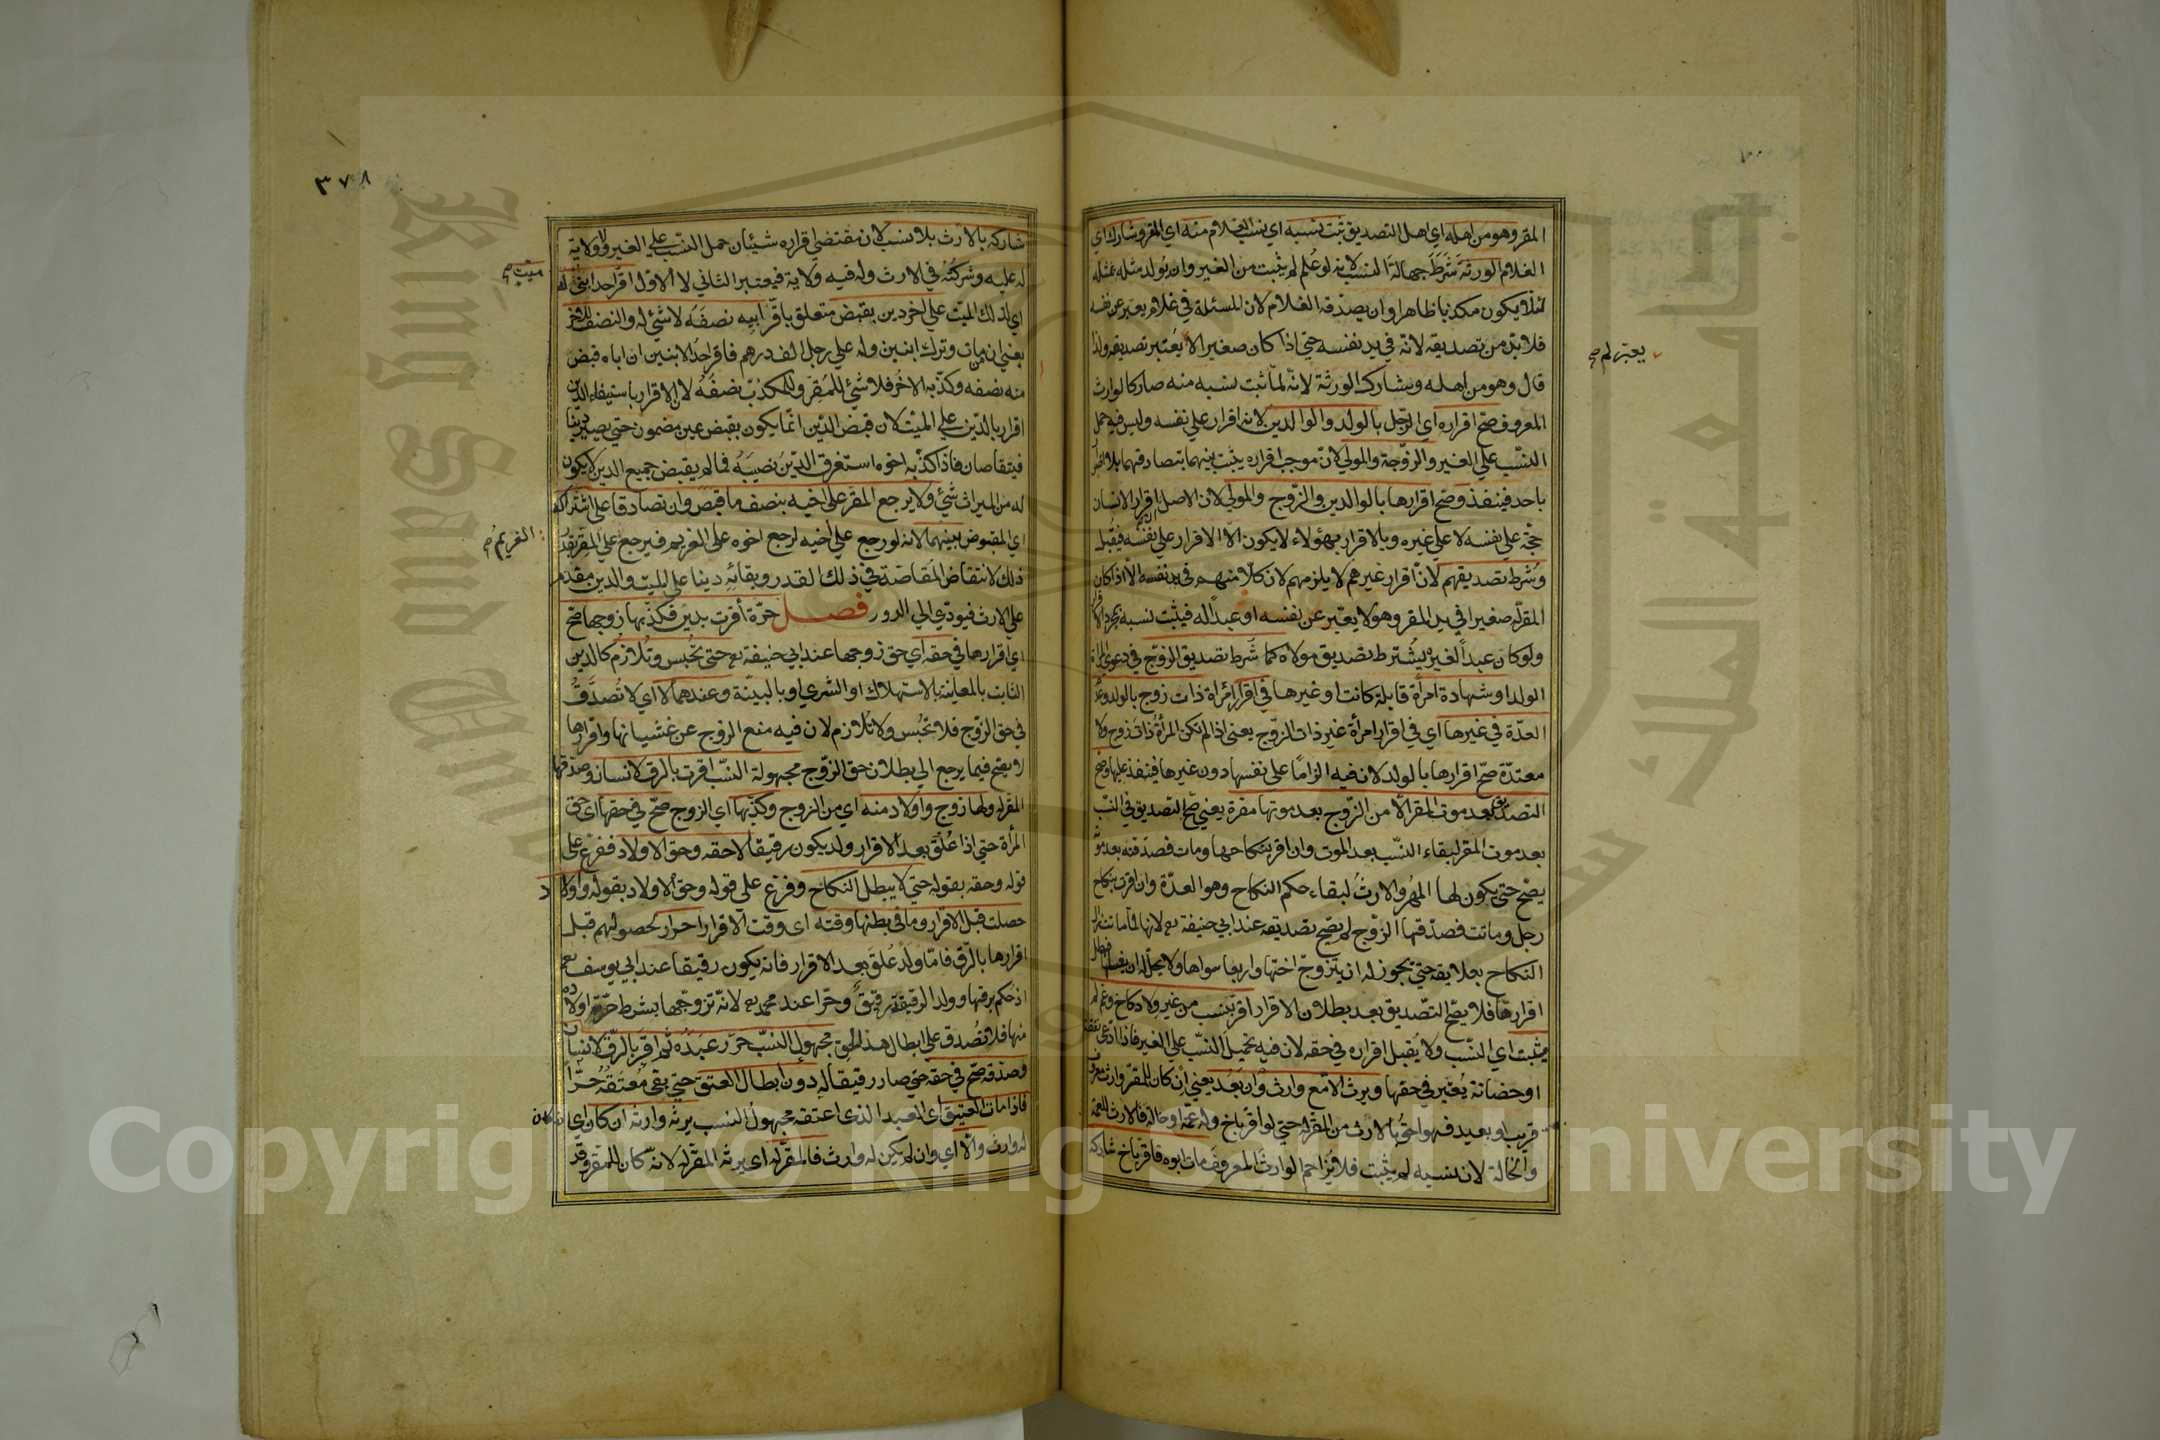 المقر وهو من اهله اي اهل التصديق ثبت نسبه اي نسب الغلام منه اي المقر وشارك اي
الغلام الورثة شرط جهالة النسب لانه لو علم لم يثبت من الغير وان يولد مثله لمثله
لئلا يكون مكذبا ظاهرا وان يصدقه الغلام لان المسئلة في غلام يعبر عن نفسه
فلا بد من تصديقه لانه في يد نفسه حتى اذا كان صغيرا لا يعتبر تصديقه ولذا
يعتبر لم صح
قال وهو من اهله ويشارك الورثة لانه لما ثبت نسبه منه صار كالوارث
المعروف صح اقراره اي الرجل بالولد والوالدين لانه اقرار على نفسه وليس فيه حمل
النسب على الغير والزوجة والمولى لان موجب اقراره يثبت بينهما بتصادقهما بلا اضرار
باحد فينفذ وصح اقرارها بالوالدين والزوج والمولى لان الاصل ان اقرار الانسان
حجة على نفسه لا على غيره وبالاقرار بهؤلاء لا يكون الا الاقرار على نفسه فيقبل
وشرط تصديقهم لان اقرار غيرهم لا يلزمهم لان كلا منهم في يد نفسه الا اذا كان
المقر له صغيرا في يد المقر وهو لا يعبر عن نفسه او عبدا له فيثبت نسبه بمجرد الاقرار
ولو كان عبدا لغيره يشترط تصديق مولاه كما شرط تصديق الزوج في دعوى المرأة
الولد او شهادة امرأة قابلة كانت او غيرها في اقرار امرأة ذات زوج بالولد او
العدة في غيرها اي في اقرار امرأة غير ذات الزوج يعني اذا لم تكن المرأة ذات زوج ولا
معتدة صح اقرارها بالولد لان فيه الزاما على نفسها دون غيرها فينفذ عليها وصح
التصديق بعد موت المقر الا من الزوج بعد موتها مقرة يعني صح التصديق في النسب
بعد موت المقر لبقاء النسب بعد الموت وان اقر بنكاحها ومات فصدقته بعد موته
يصح حتى يكون لها المهر والارث لبقاء حكم النكاح وهو العدة وان اقرت بنكاح
رجل وماتت فصدقها الزوج لم يصح تصديقه عند ابي حنيفة رح لانها لما ماتت زال
النكاح بعلايقه حتى يجوز له ان يتزوج اختها واربعا سواها ولا يحل له ان يغسلها فبطل
اقرارها فلا يصح التصديق بعد بطلان الاقرار اقر بنسب من غير ولاد كاخ وعم لم
يثبت اي النسب ولا يقبل اقراره في حقه لان فيه تحميل النسب على الغير فاذا ادعى نفقة
او حضانة يعتبر في حقها ويرث الا مع وارث وان بعد يعني ان كان للمقر وارث معروف
قريب او بعيد فهو احق بالارث من المقر له حتى لو اقر باخ وله عمة او خالة فالارث للعمة
والخالة لان نسبه لم يثبت فلا يزاحم الوارث المعروف مات ابوه فاقر باخ شاركه
٣٧٨
شاركه بالارث بلا نسب لان مقتضى اقراره شيئان حمل النسب على الغير ولا ولاية
له عليه وشركته في الارث وله فيه ولاية فيعتبر الثاني لا الاول اقر احد ابني له
ميت صح
اي لذلك الميت على اخر دين بقبض متعلق باقر ابيه نصفه لا شئ له والنصف للاخر
يعني ان من مات وترك ابنين وله على رجل الف درهم فاقر احد الابنين ان اباه قبض
منه نصفه وكذبه الاخر فلا شئ للمقر وللمكذب نصفه لان الاقرار باستيفاء الدين
اقرار بالدين على الميت لان قبض الدين انما يكون بقبض عين مضمون حتى يصير دينا
فيتقاصان فاذا كذبه اخوه استغرق الدين نصيبه فما لم يقبض جميع الدين لا يكون
له من الميراث شئ ولا يرجع المقر على اخيه بنصف ما قبض وان تصادقا على اشتراكه
اي المقبوض بينهما لانه لو رجع على اخيه لرجع اخوه على الغريم فيرجع على المقر بقدر
الغريم صح
ذلك لانتقاض المقاصة في ذلك القدر وبقائه دينا على الميت والدين مقدم
على الارث فيؤدي الى الدور فصل حرة أقرت بدين فكذبها زوجها صح
اي اقرارها في حقه اي حق زوجها عند ابي حنيفة رح حتى تحبس وتلازم كالدين
الثابت بالمعاينة بالاستهلاك او الشرى او بالبينة وعندهما لا اي لا تصدق
في حق الزوج فلا تحبس ولا تلازم لان فيه منع الزوج عن غشيانها واقرارها
لا يصح فيما يرجع الى بطلان حق الزوج مجهولة النسب اقرت بالرق لانسان وصدقها
المقر له ولها زوج واولاد منه اي من الزوج وكذبها اي الزوج صح في حقها اي حق
المرأة حتى اذا علق بعد الاقرار ولد يكون رقيقا لا حقه وحق الاولاد ففرع على
قوله وحقه بقوله حتى لا يبطل النكاح وفرع على قوله وحق الاولاد بقوله واولاد
حصلت قبل الاقرار وما في بطنها وقته اي وقت الاقرار احرار لحصولهم قبل
اقرارها بالرق فاما ولد علق بعد الاقرار فانه يكون رقيقا عند ابي يوسف رح
اذ حكم برقها وولد الرقيقة رقيق وحرا عند محمد رح لانه تزوجها بشرط حرية اولاده
منها فلا تصدق على ابطال هذا الحق مجهول النسب حرر عبده ثم اقر بالرق لانسان
وصدقه صح في حقه حتى صار رقيقا له دون ابطال العتق حتى بقي معتقه حرا
فاذا مات العتيق اي العبد الذي اعتقه مجهول النسب يرثه وارثه ان كان اي ان كان
له وارث والا اي وان لم يكن له وارث فالمقر له اي يرثه المقر له لانه كان للمقر وقد
Copyright © King Saud University
King Saud University
جامعة الملك سعود